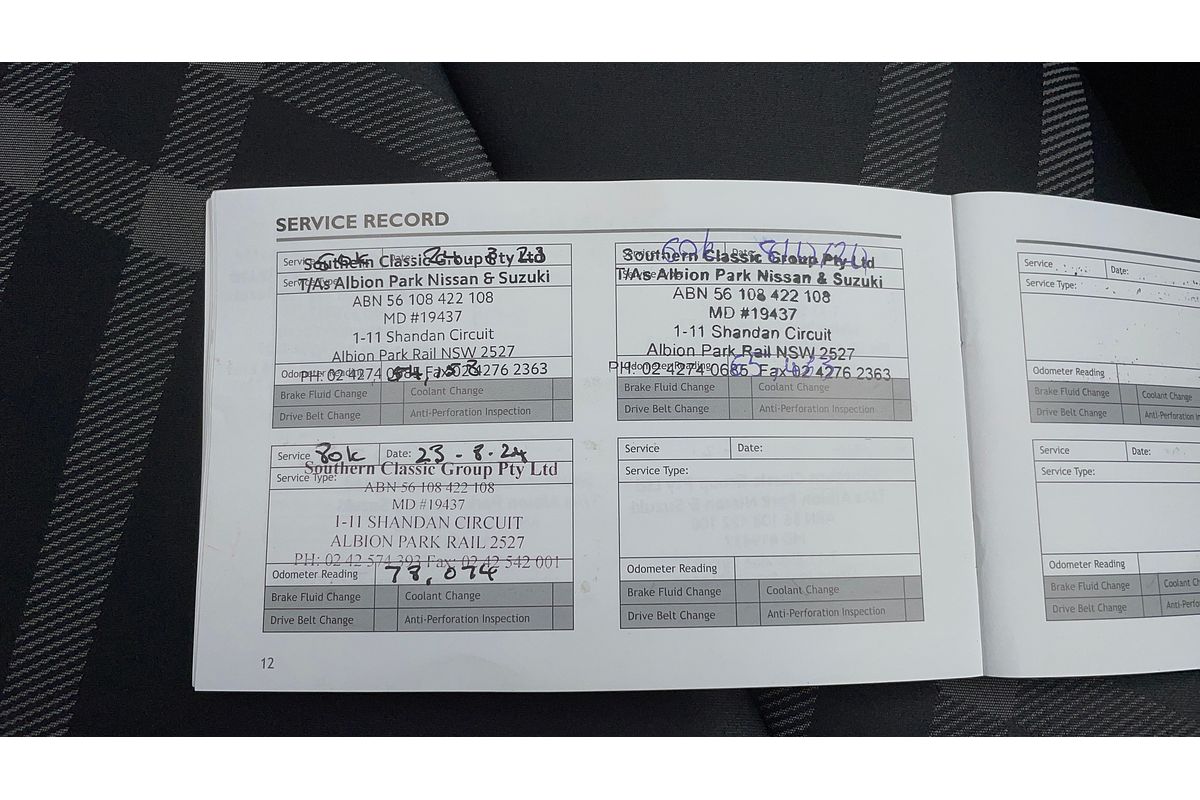 SERVICE RECORD
Service 60k Date:
Southern Classic Group Pty Ltd
Service Type:
T/As Albion Park Nissan & Suzuki
ABN 56 108 422 108
MD #19437
1-11 Shandan Circuit
Albion Park Rail NSW 2527
Odometer Reading
PH: 02 4274 Fax 02 4276 2363
Brake Fluid Change Coolant Change
Drive Belt Change Anti-Perforation Inspection
Service 60k Date:
Southern Classic Group Pty Ltd
T/As Albion Park Nissan & Suzuki
ABN 56 108 422 108
MD #19437
1-11 Shandan Circuit
Albion Park Rail NSW 2527
Odometer Reading
PH: 02 4274 0685 Fax 02 4276 2363
Brake Fluid Change Coolant Change
Drive Belt Change Anti-Perforation Inspection
Service 80k Date: 23-8-24
Southern Classic Group Pty Ltd
Service Type:
ABN 56 108 422 108
MD #19437
1-11 SHANDAN CIRCUIT
ALBION PARK RAIL 2527
PH: 02 42 574 393 Fax: 02 42 542 001
Odometer Reading 78,074
Brake Fluid Change Coolant Change
Drive Belt Change Anti-Perforation Inspection
Service Date:
Service Type:
Odometer Reading
Brake Fluid Change Coolant Change
Drive Belt Change Anti-Perforation Inspection
12
Service Date:
Service Type:
Odometer Reading
Brake Fluid Change Coolant Change
Drive Belt Change
Service Date:
Service Type:
Odometer Reading
Brake Fluid Change Coolant
Drive Belt Change